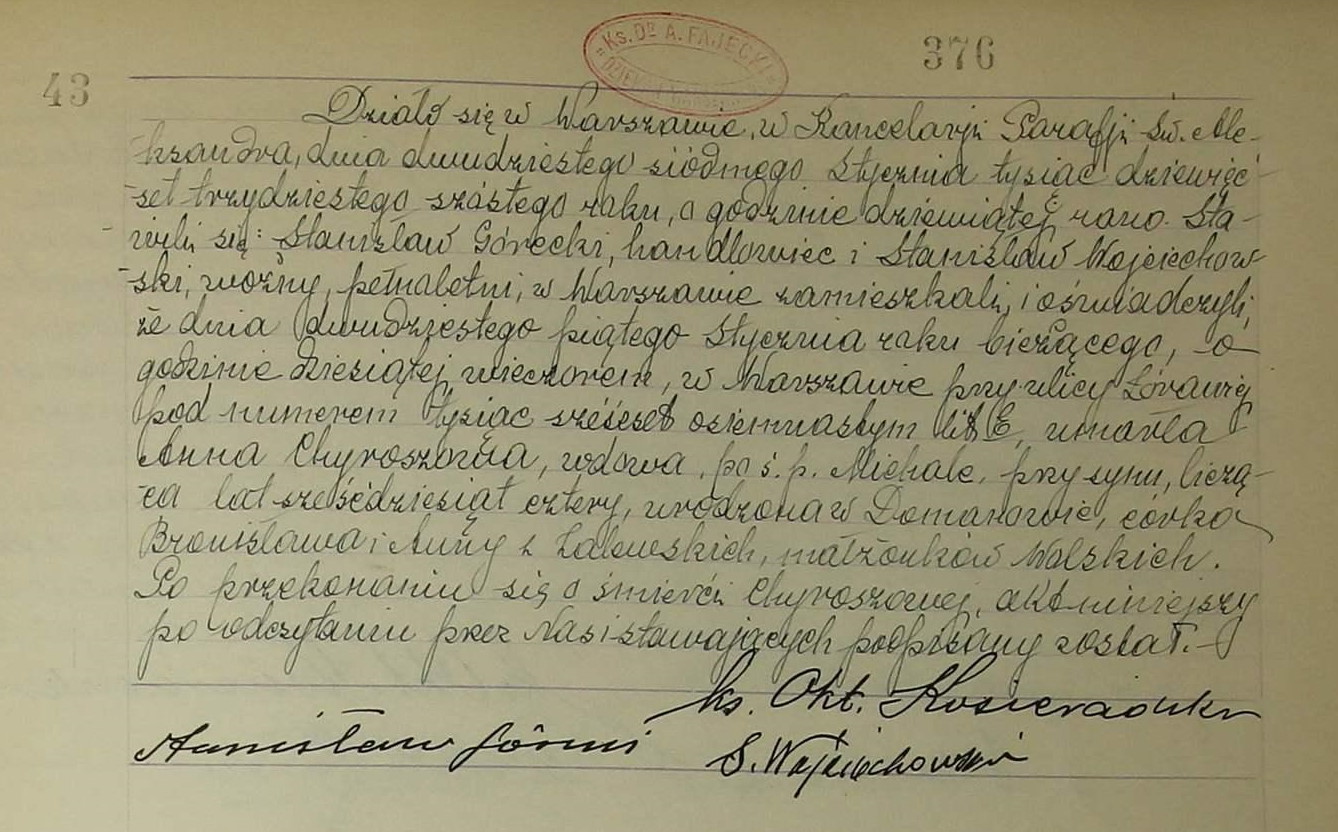 376
43
Ks. Dr A. FAJĘCKI
Działo się w Warszawie, w Kancelarji Parafji św. Ale-
ksandra, dnia dwudziestego siódmego Stycznia tysiąc dziewięć-
set trzydziestego szóstego roku, o godzinie dziewiątej rano. Sta-
wili się: Stanisław Górecki, handlowiec i Stanisław Wojciechow-
ski, woźny, pełnoletni, w Warszawie zamieszkali, i oświadczyli,
że dnia dwudziestego piątego Stycznia roku bieżącego, o
godzinie dziesiątej wieczorem, w Warszawie przy ulicy Żórawiej
pod numerem tysiąc sześćset osiemnastym lit E, umarła
Anna Chyroszowa, wdowa po ś. p. Michale, przy synu, liczą-
ca lat sześćdziesiąt cztery, urodzona w Domanowie, córka
Bronisława i Anny z małżonków Wolskich.
Po przekonaniu się o śmierci Chyroszowej, akt niniejszy
po odczytaniu przez Nas i stawających podpisany został.
ks. Okt.
Stanisław
S. Wojciechowski